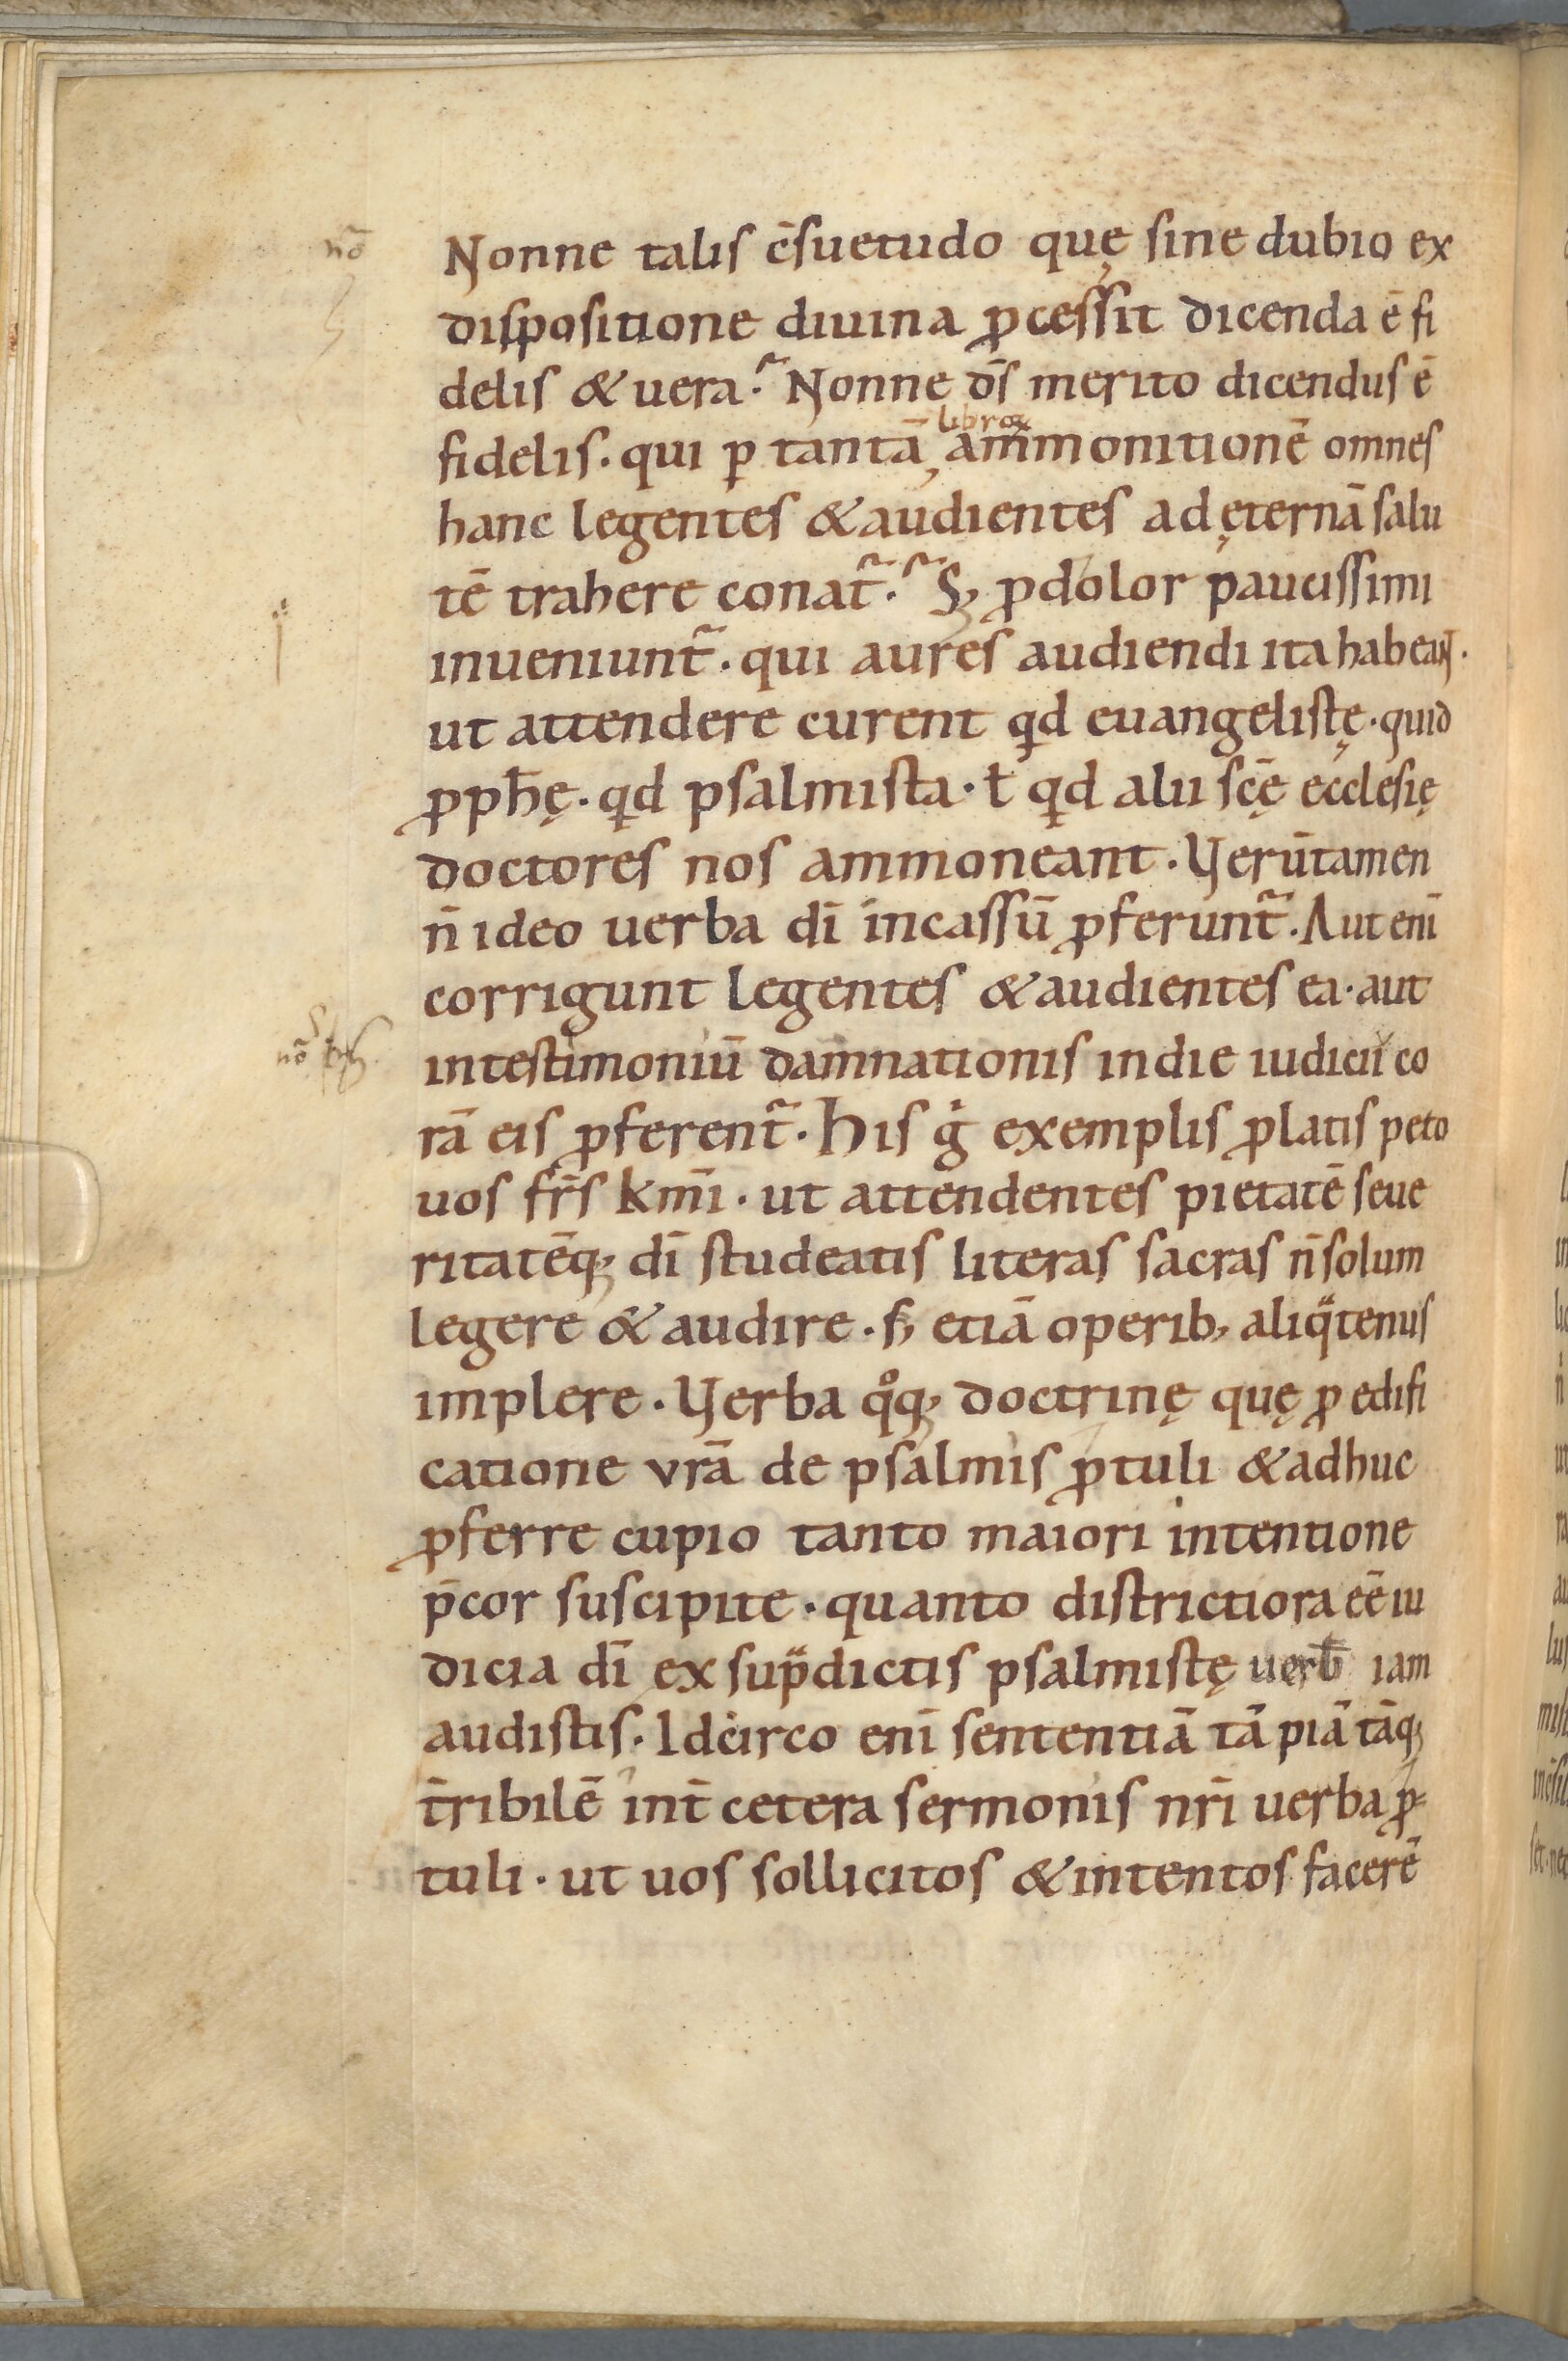 nō
Nonne talis c̄suetudo quę sine dubio ex
dispositione diuina ꝓcessit dicenda ē fi
delis & uera. Nonne d̄s merito dicendus ē
libroꝝ
fidelis. qui ꝑ tantā, ammonitionē omnes
hanc legentes & audientes ad ęternā salu
tē trahere conat̃. S; ꝓdolor paucissimi
inueniunt̃. qui aures audiendi ita habeant.
ut attendere curent qd euangelistę. quid
ꝓph̄ę. qd psalmista. ł qd alii sc̄ę ecclesię
doctores nos ammoneant. Verūtamen
n̄ ideo uerba dī incassū ꝓferunt̃. Aut enī
corrigunt legentes & audientes ea. aut
nō
in testimoniū damnationis in die iudicii co
rā eis ꝓferent̃. His g̊ exemplis ꝓlatis peto
uos fr̄s km̄i. ut attendentes pietatē seue
ritatēq; dī studeatis literas sacras n̄ solum
legere & audire. s; etiā operib; aliq̈tenus
implere. Verba q̊q; doctrinę quę ꝓ edifi
catione vr̄a de psalmis ꝓtuli & adhuc
ꝓferre cupio tanto maiori intentione
p̄cor suscipite. quanto districtiora eē iu
dicia dī ex sup̈dictis psalmistę uerb̄ iam
audistis. Idcirco enī sententiā tā piā tāq;
t̄ribilē int̄ cetera sermonis nr̄i uerba ꝓ=
tuli. ut uos sollicitos & intentos facerē